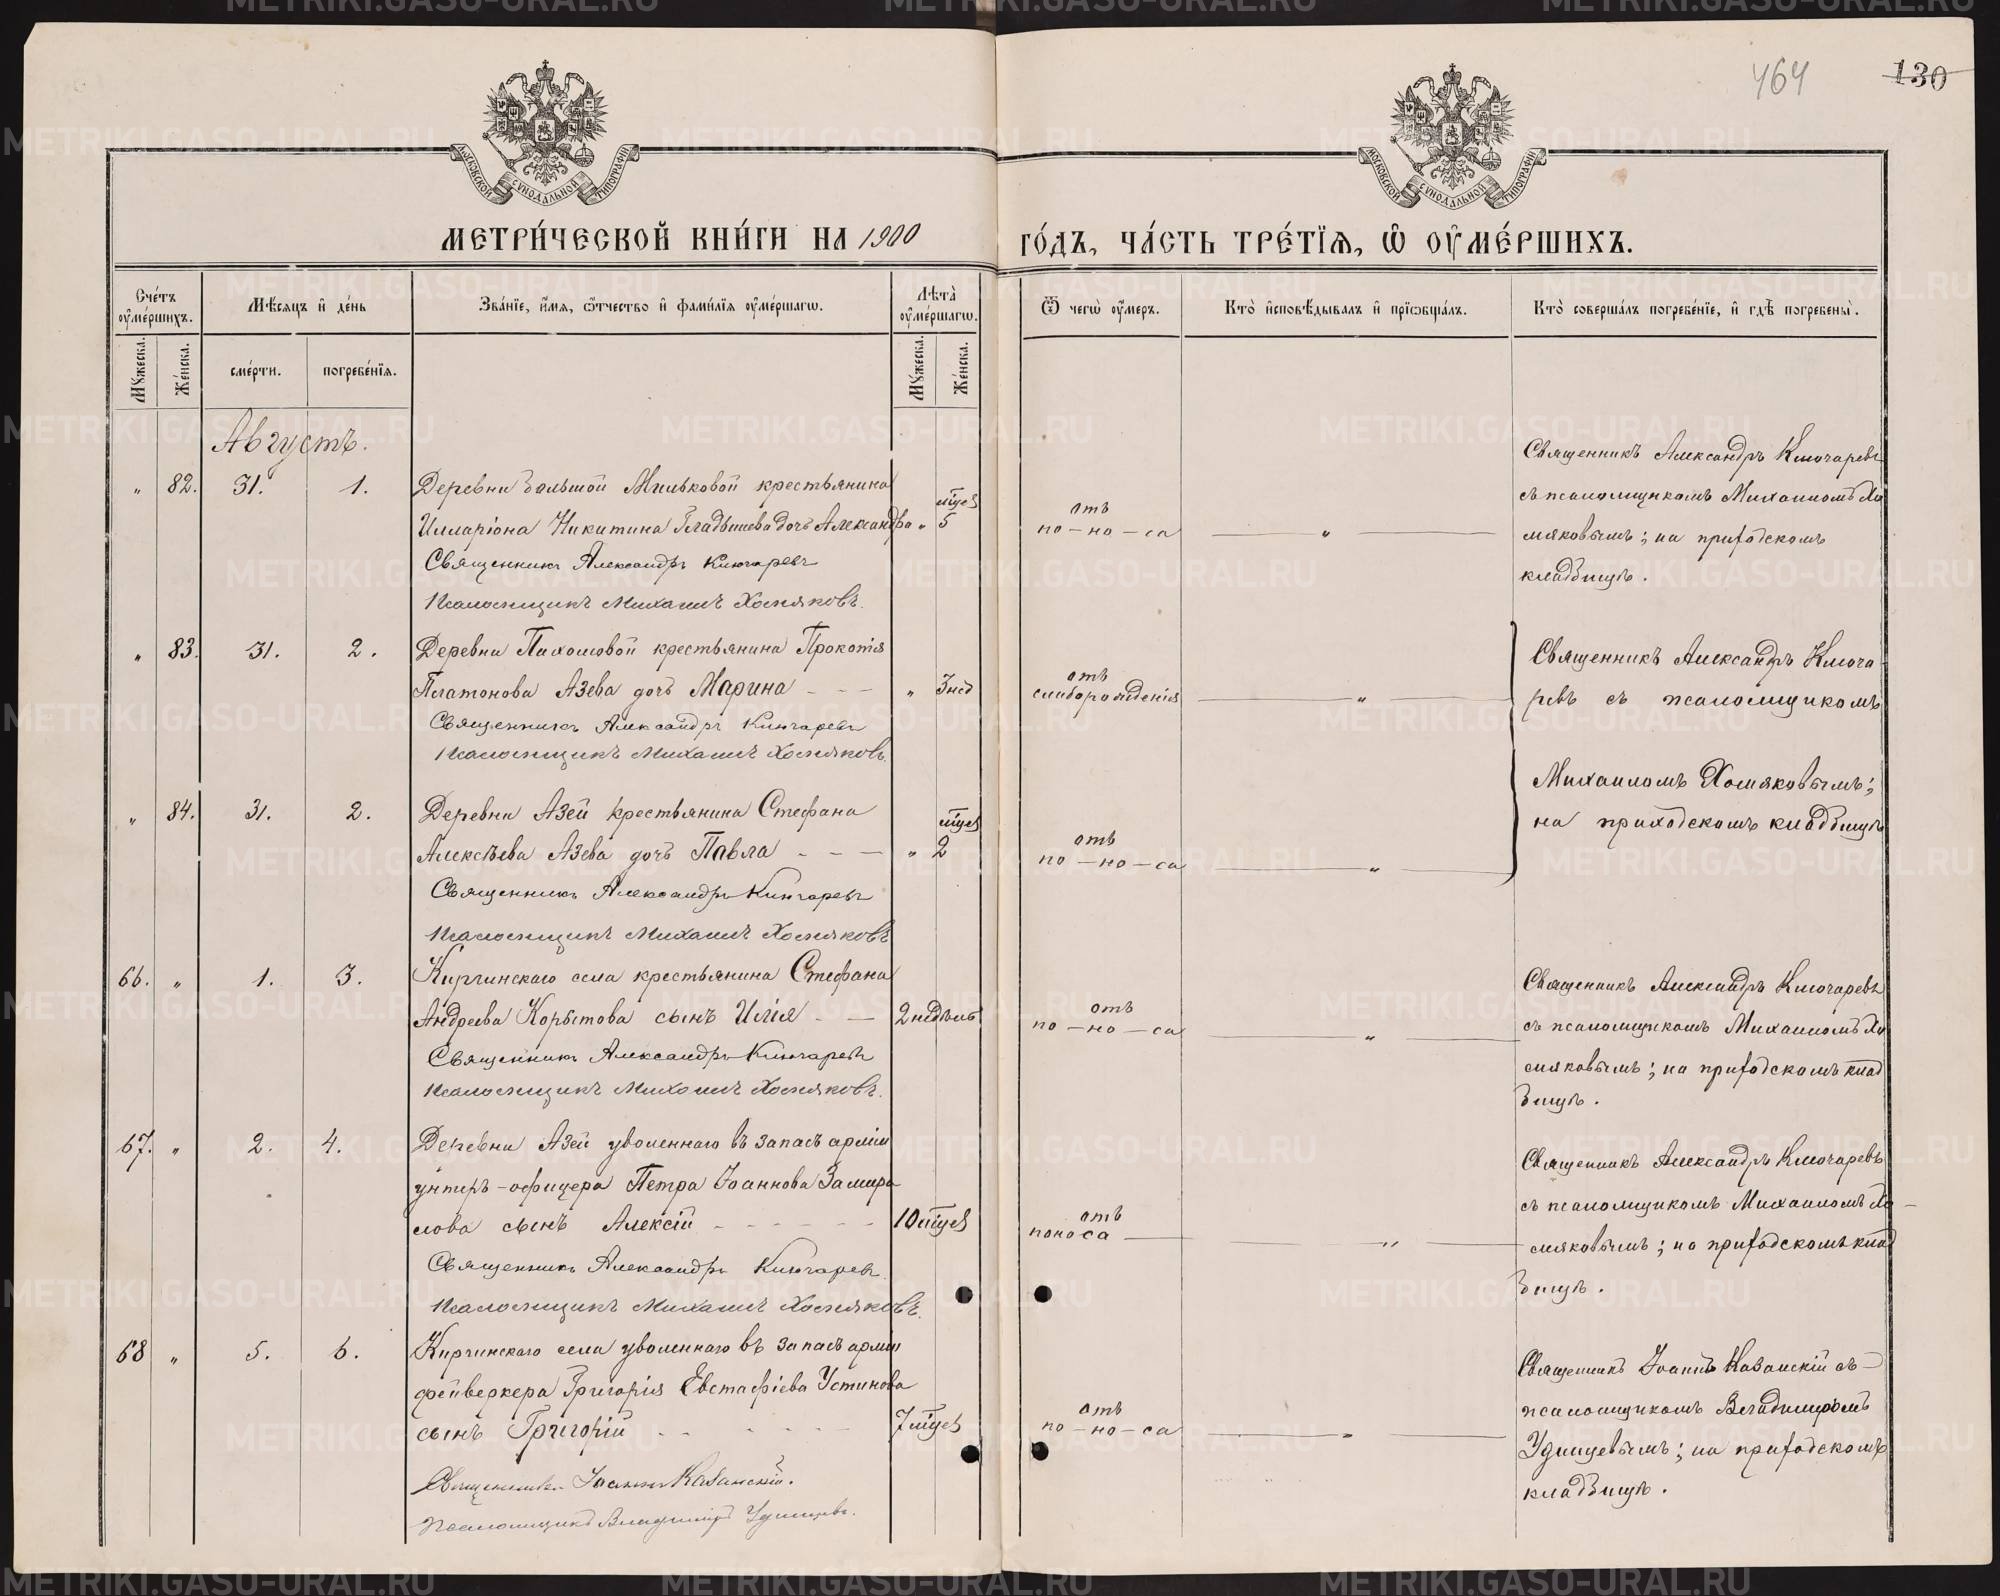 464
130
МОСКОВСКОЙ СѴНОДАЛЬНОЙ ТИПОГРАФІИ
МОСКОВСКОЙ СѴНОДАЛЬНОЙ ТИПОГРАФІИ
МЕТРИ́ЧЕСКОЙ КНИ́ГИ НА 1900 ГО́ДЪ, ЧА́СТЬ ТРЕ́ТІѦ, Ѽ ОУ҆МЕ́РШИХЪ.
Сче́тъ оу҆ме́ршихъ.
Мѣ́сѧцъ и҆ де́нь
Зва́нїе, и҆́мѧ, ѻ҆́тчество и҆ фами́лїѧ оу҆ме́ршагѡ.
Лѣ́та оу҆ме́ршагѡ.
Ѿ чегѡ̀ оу҆́меръ.
Кто̀ и҆сповѣ́дывалъ и҆ прїѡбща́лъ.
Кто̀ соверша́лъ погребе́нїе, и҆ гдѣ̀ погребены̀.
Мꙋ́жеска.
Же́нска.
сме́рти.
погребе́нїѧ.
Мꙋ́жеска.
Же́нска.
Августъ.
„ 82. 31. 1. Деревни Большой Мильковой крестьянина
Илларіона Никитина Гладышева дочь Александра „ 5 мѣсяц
Священникъ Александръ Ключаревъ
Псаломщикъ Михаилъ Хомяковъ.
отъ
по-но-са
„
Священникъ Александръ Ключаревъ
съ псаломщикомъ Михаиломъ Хо
мяковымъ; на приходскомъ
кладбищѣ.
„ 83. 31. 2. Деревни Пахомовой крестьянина Прокопія
Платонова Азева дочь Марина - - - „ 3 нед
Священникъ Александръ Ключаревъ
Псаломщикъ Михаилъ Хомяковъ.
отъ
слаборожденія
„
Священникъ Александръ Ключа
ревъ съ псаломщикомъ
Михаиломъ Хомяковымъ;
на приходскомъ кладбищѣ
„ 84. 31. 2. Деревни Азей крестьянина Стефана
Алексѣева Азева дочь Павла - - - „ 2 мѣсяц
Священникъ Александръ Ключаревъ
Псаломщикъ Михаилъ Хомяковъ
отъ
по-но-са
„
66. „ 1. 3. Киргинскаго села крестьянина Стефана
Андреева Корытова сынъ Илія - - 2 недѣль
Священникъ Александръ Ключаревъ
Псаломщикъ Михаилъ Хомяковъ.
отъ
по-но-са
„
Священникъ Александръ Ключаревъ
съ псаломщикомъ Михаиломъ Хо
мяковымъ; на приходскомъ клад
бищѣ.
67. „ 2. 4. Деревни Азей уволеннаго въ запасъ арміи
унтеръ-офицера Петра Іоаннова Замира
лова сынъ Алексій - - - - - - 10 мѣсяц
Священникъ Александръ Ключаревъ.
Псаломщикъ Михаилъ Хомяковъ.
отъ
поноса
„
Священникъ Александръ Ключаревъ
съ псаломщикомъ Михаиломъ Хо-
мяковымъ; на приходскомъ клад
бищѣ.
68 „ 5. 6. Киргинскаго села уволеннаго въ запасъ арміи
фейверкера Григорія Евстафіева Устинова
сынъ Григорій - - - - - - 7 мѣсяц
Священникъ Іоаннъ Казанскій.
Псаломщикъ Владиміръ Удинцевъ.
отъ
по-но-са
„
Священникъ Іоаннъ Казанскій съ-
псаломщикомъ Владиміромъ
Удинцевымъ; на приходскомъ
кладбищѣ.
METRIKI.GASO-URAL.RU